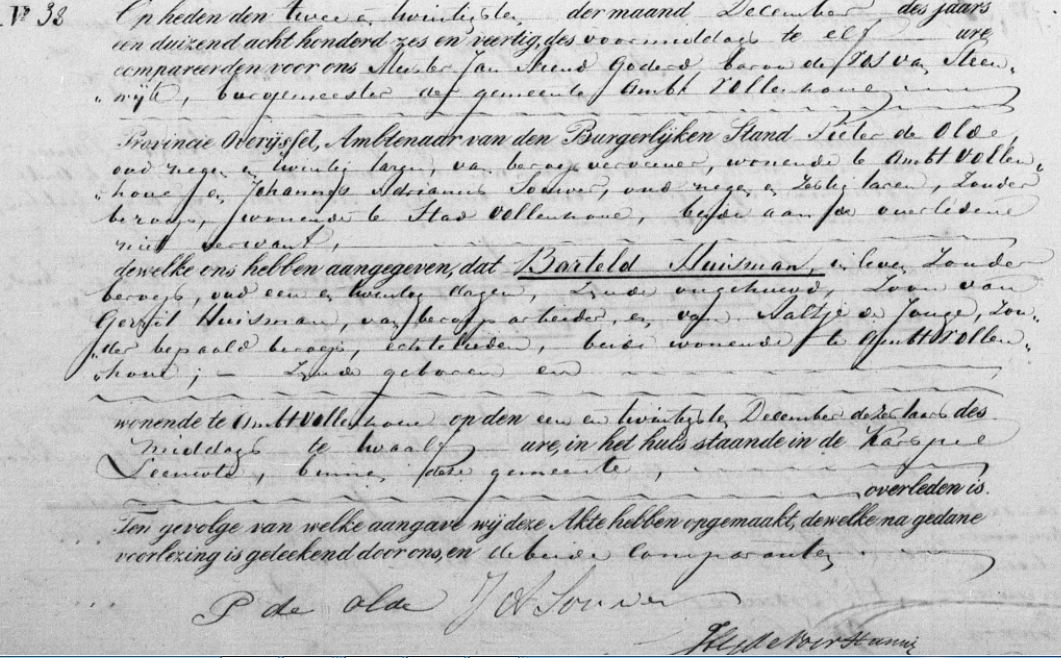 N° 38 Op heden den twee en twintigsten der maand December des jaars
een duizend acht honderd zes en veertig, des voormiddags te elf ure,
compareerden voor ons Meester Jan Arend Goderd baron de Vos van Steen„
„wijk, burgemeester der gemeente Ambt Vollenhove
Provincie Overijssel, Ambtenaar van den Burgerlijken Stand Pieter de Olde,
oud negen en twintig Jaren, van beroep vervener, wonende te Ambt Vollen„
„hove en Johannes Adrianus Souwer, oud negen en Zestig Jaren, Zonder
beroep, wonende te Stad Vollenhove, beide aan de overledene
niet verwant,
dewelke ons hebben aangegeven, dat Barteld Huisman, in leven Zonder
beroep, oud een en twintig dagen, Zynde ongehuwd, Zoon van
Gerrit Huisman, van beroep arbeider, en van Aaltje de Jonge, Zon„
„der bepaald beroep, echtelieden, beide wonende te Ambt Vollen„
„hove; – Zynde geboren en
wonende te Ambt Vollenhove op den een en twintigsten December dezes Jaars des
middags te twaalf ure, in het huis staande in de Karspel
Leeuwte, binnen deze gemeente,
overleden is.
Ten gevolge van welke aangave wij deze Akte hebben opgemaakt, dewelke na gedane
voorlezing is geteekend door ons, en de beide Comparanten
P de Olde J A Souwer